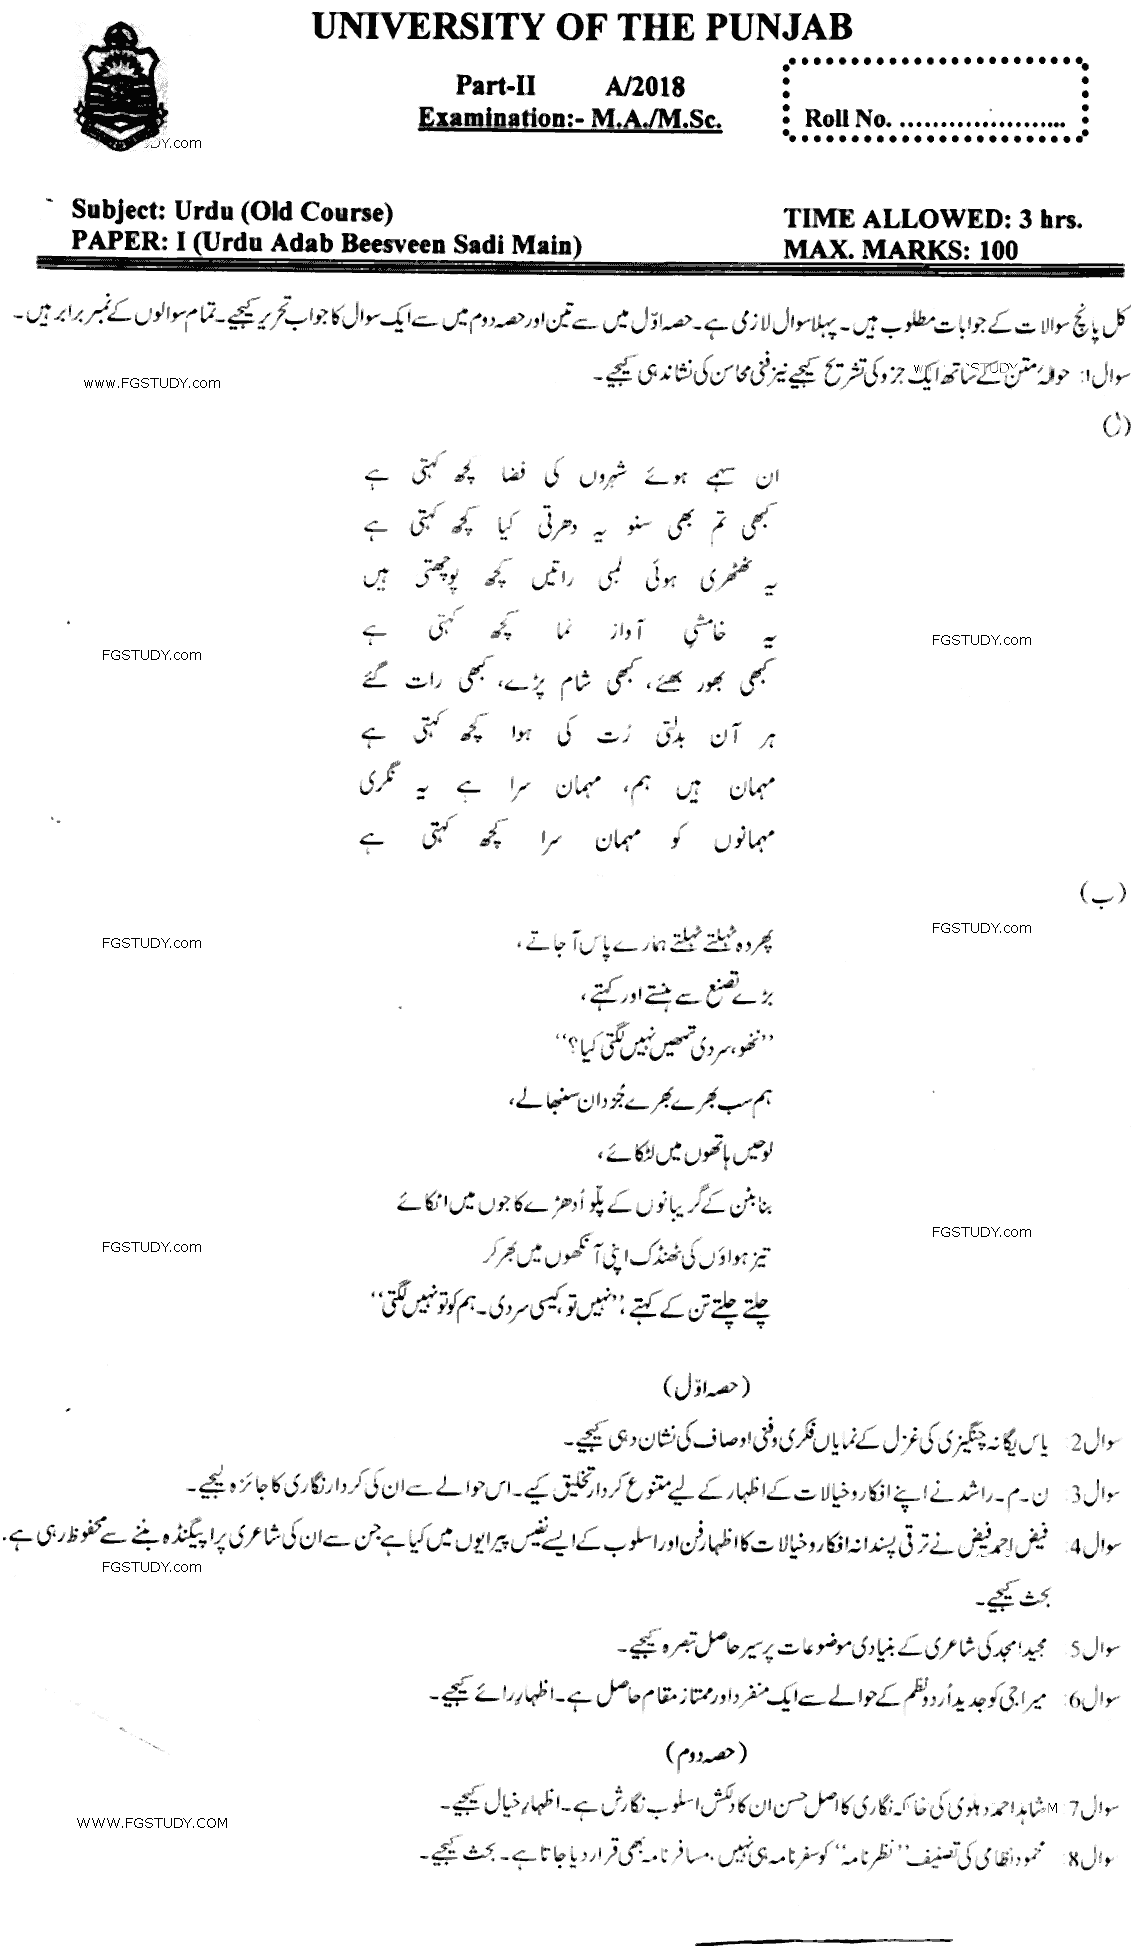 UNIVERSITY OF THE PUNJAB
Part-II A/2018
Examination:- M.A./M.Sc.
Roll No. .....................
Subject: Urdu (Old Course)
PAPER: I (Urdu Adab Beesveen Sadi Main)
TIME ALLOWED: 3 hrs.
MAX. MARKS: 100
کل پانچ سوالات کے جوابات مطلوب ہیں۔ پہلا سوال لازمی ہے۔ حصہ اوّل میں سے تین اور حصہ دوم میں سے ایک سوال کا جواب تحریر کیجیے۔ تمام سوالوں کے نمبر برابر ہیں۔
سوال 1: حوالۂ متن کے ساتھ ایک جزو کی تشریح کیجیے نیز فنی محاسن کی نشاندہی کیجیے۔
www.FGSTUDY.com
(ا)
ان سہمے ہوئے شہروں کی فضا کچھ کہتی ہے
کبھی تم بھی سنو یہ دھرتی کیا کچھ کہتی ہے
یہ ٹھٹھری ہوئی لمبی راتیں کچھ پوچھتی ہیں
یہ خامشیِ آواز نما کچھ کہتی ہے
FGSTUDY.com
FGSTUDY.com
کبھی بھور بھئے، کبھی شام پڑے، کبھی رات گئے
ہر آن بدلتی رُت کی ہوا کچھ کہتی ہے
مہمان ہیں ہم، مہمان سرا ہے یہ نگری
مہمانوں کو مہمان سرا کچھ کہتی ہے
(ب)
FGSTUDY.com
FGSTUDY.com
پھر وہ ٹہلتے ٹہلتے ہمارے پاس آ جاتے،
بڑے تصنع سے ہنستے اور کہتے،
''ننھو، سردی تمھیں نہیں لگتی کیا؟''
ہم سب بھرے بھرے جُزدان سنبھالے،
لوحیں ہاتھوں میں لٹکائے،
بنا بٹن کے گریبانوں کے پلّو اُدھڑے کاجوں میں اٹکائے
FGSTUDY.com
FGSTUDY.com
تیز ہواؤں کی ٹھنڈک اپنی آنکھوں میں بھر کر
چلتے چلتے تن کے کہتے: ''نہیں تو، کیسی سردی۔ ہم کو تو نہیں لگتی''
(حصہ اوّل)
سوال 2: یاس یگانہ چنگیزی کی غزل کے نمایاں فکری و فنی اوصاف کی نشان دہی کیجیے۔
سوال 3: ن۔م۔راشد نے اپنے افکار و خیالات کے اظہار کے لیے متنوع کردار تخلیق کیے۔ اس حوالے سے ان کی کردار نگاری کا جائزہ لیجیے۔
سوال 4: فیض احمد فیض نے ترقی پسندانہ افکار و خیالات کا اظہار فن اور اسلوب کے ایسے نفیس پیرایوں میں کیا ہے جن سے ان کی شاعری پراپیگنڈہ بننے سے محفوظ رہی ہے۔
بحث کیجیے۔
FGSTUDY.com
سوال 5: مجید امجد کی شاعری کے بنیادی موضوعات پر سیر حاصل تبصرہ کیجیے۔
سوال 6: میرا جی کو جدید اُردو نظم کے حوالے سے ایک منفرد اور ممتاز مقام حاصل ہے۔ اظہارِ رائے کیجیے۔
(حصہ دوم)
سوال 7: شاہد احمد دہلوی کی خاکہ نگاری کا اصل حسن ان کا دلکش اسلوب نگارش ہے۔ اظہارِ خیال کیجیے۔
WWW.FGSTUDY.COM
سوال 8: محمود نظامی کی تصنیف ''نظر نامہ'' کو سفر نامہ ہی نہیں، مسافر نامہ بھی قرار دیا جاتا ہے۔ بحث کیجیے۔